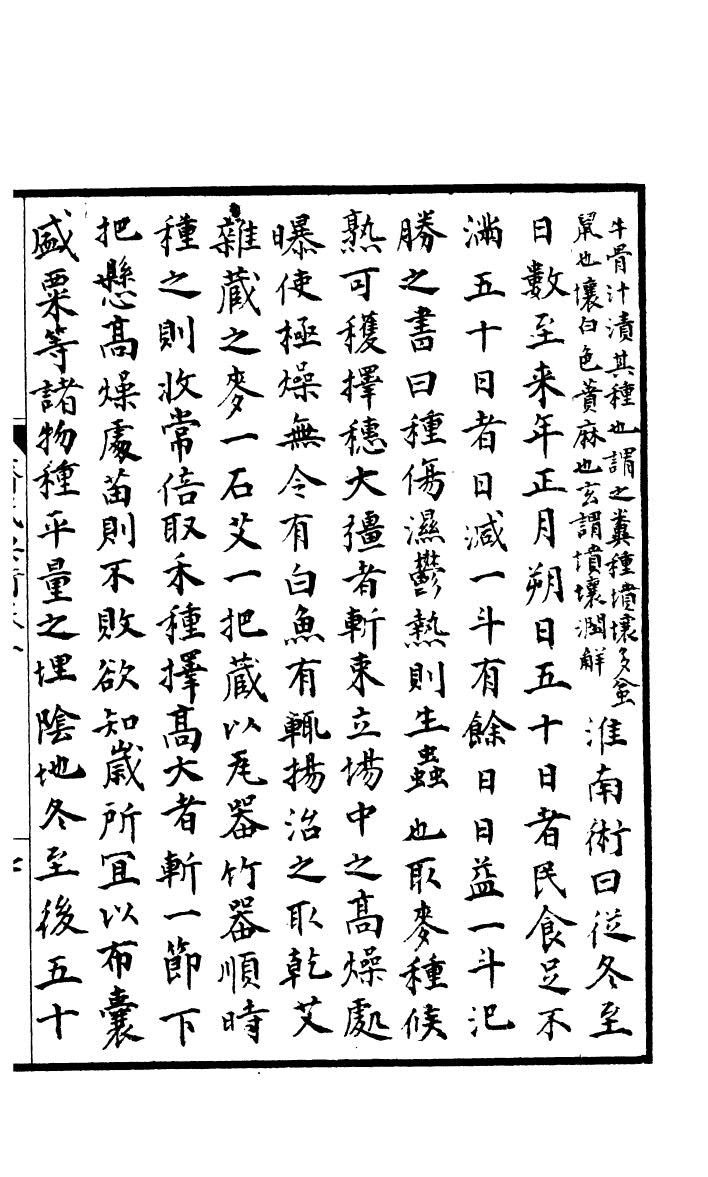 牛骨汁漬其種也謂之糞種墳壤多蚠
鼠也壤白色蕡麻也玄謂墳壤潤解
淮南術曰從冬至
日數至来年正月朔日五十日者民食足不
滿五十日者日減一斗有餘日日益一斗汜
勝之書曰種傷濕鬱熱則生蟲也取麥種候
熟可穫擇穗大彊者斬束立場中之高燥處
曝使極燥無令有白魚有輒揚治之取乾艾
雜蔵之麥一石艾一把蔵以瓦器竹器順時
種之則收常倍取禾種擇高大者斬一節下
把懸高燥處苗則不敗欲知歲所宜以布囊
盛粟等諸物種平量之埋陰地冬至後五十